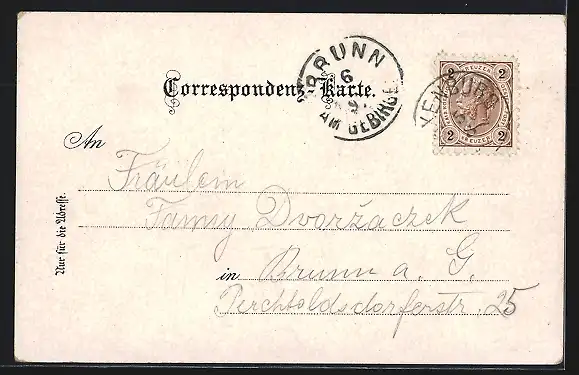 BRUNN
6
AM GEBIRGE
2 KREUZER 2
2 KREUZER 2
Correspondenz-Karte.
An
Fräulein
Fanny Dvoržaczek
in Brunn a. G.
Perchtoldsdorferstr. 25
Nur für die Adresse.